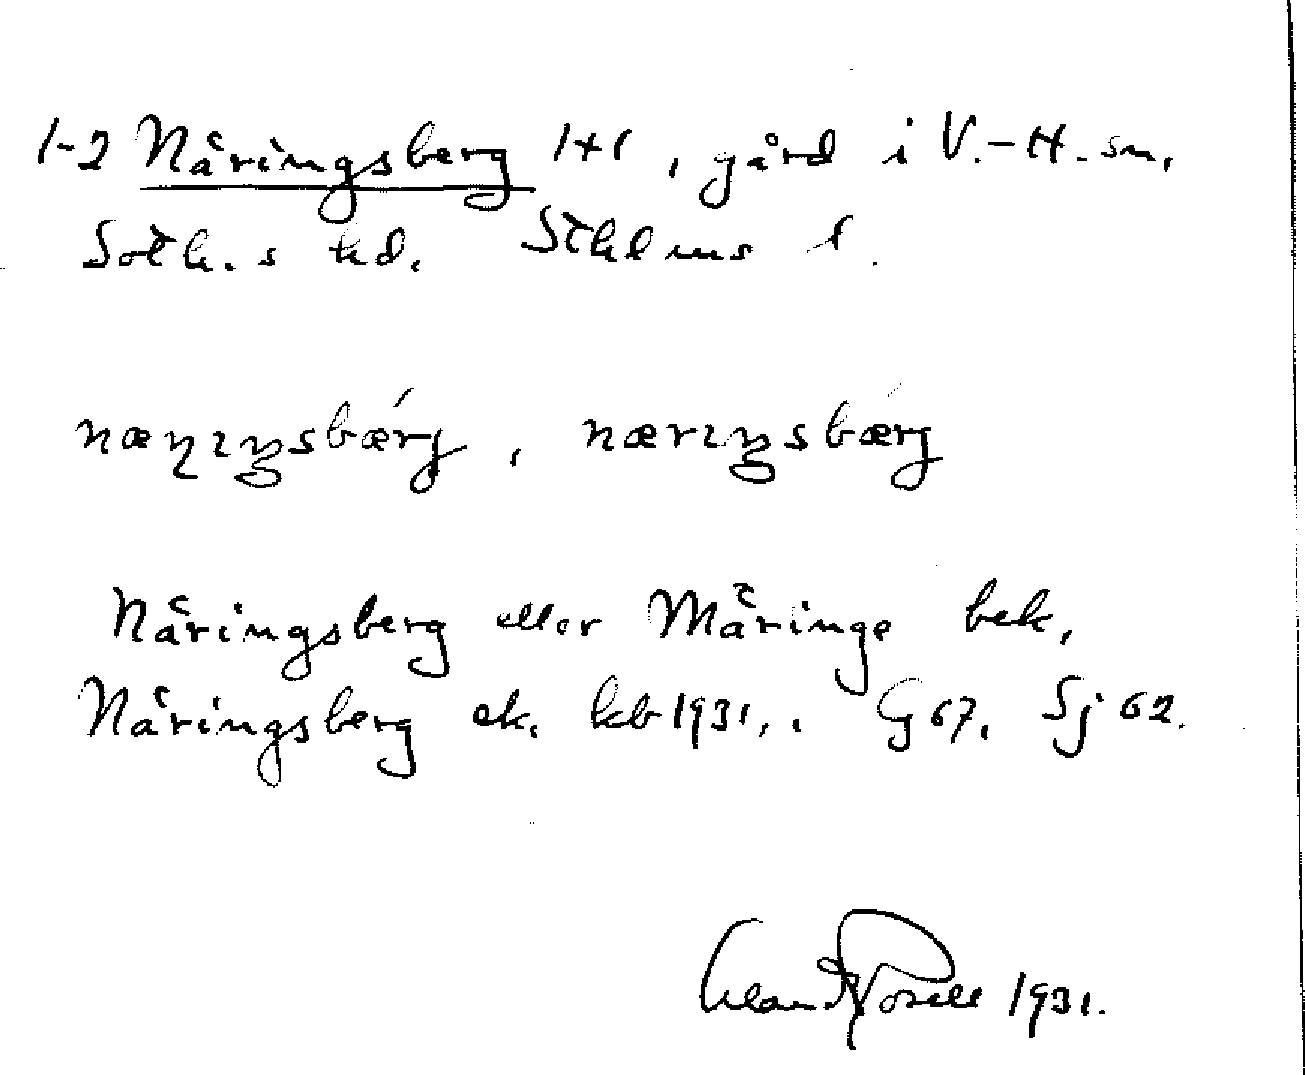 1-2 Näringsberg 1+1, gård i V.-H. sn,
Soth.s hd. Sthlms l.
næɲıŋsbærg, nærıŋsbærg
Näringsberg eller Märinge bek.
Näringsberg ek. kb 1931,. G 67. Sj 62.
1931.